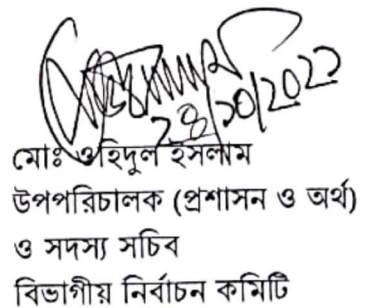 ২৪/১০/২০২২
মোঃ ওহিদুল ইসলাম
উপপরিচালক (প্রশাসন ও অর্থ)
ও সদস্য সচিব
বিভাগীয় নির্বাচন কমিটি